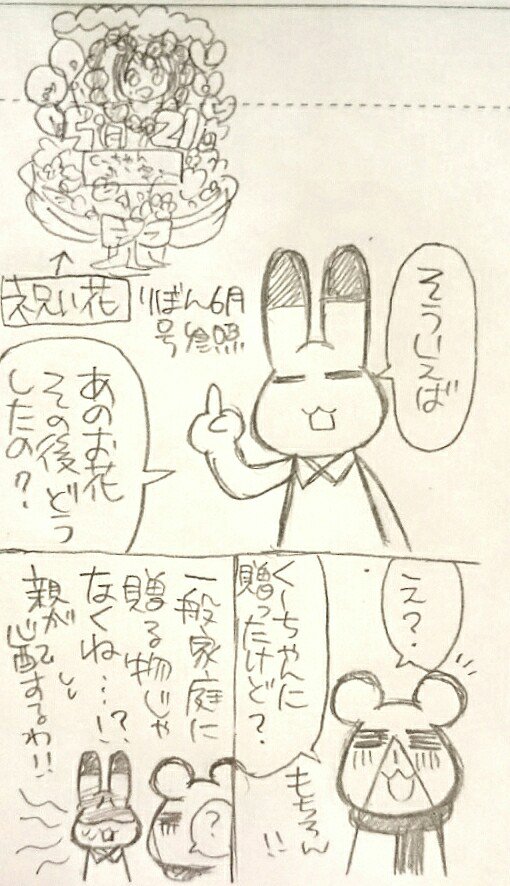 5月21日
くーちゃん
祝い花
りぼん6月
号参照
そういえば
あのお花
その後どう
したの?
え?
くーちゃんに
贈ったけど?
もちろん!!
一般家庭に
贈る物じゃ
なくね…!?
親が心配するわ!!
?